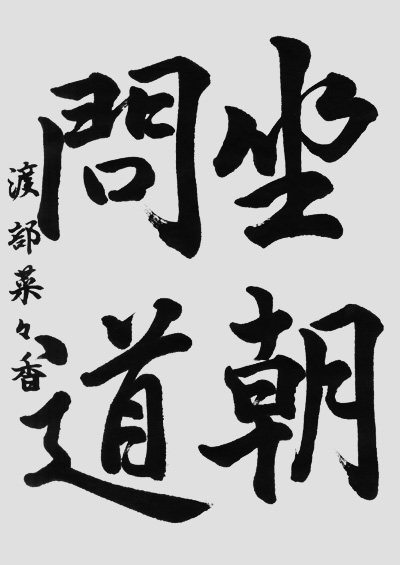 坐朝
問道
渡部菜々香